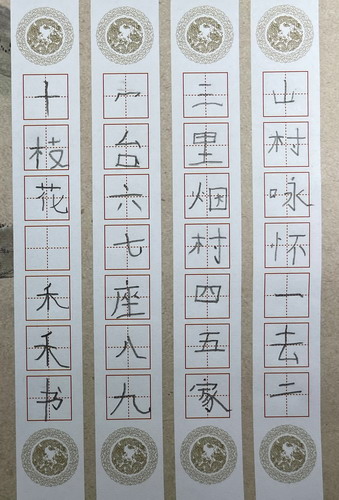 山村咏怀一去二
三里烟村四五家
台六七座八九
十枝花禾禾书